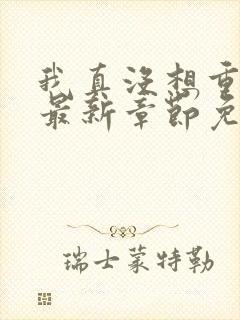 我真没想重
最新章节免
瑞士蒙特勒